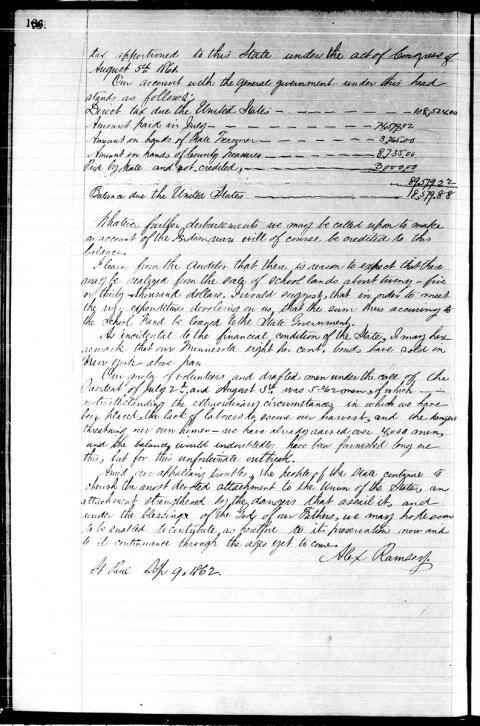 106.
tax apportioned to this State under the act of Congress of
August 5th 1861.
Our account with the general government under this head
stands as follows;
Direct tax due the United States 108,524.00
Amount paid in July
Amount on hands of State Treasurer
Amount on hands of County Treasurers 8,735.00
Paid by State and not credited, 3000.00
Balance due the United States
Whatever further disbursements we may be called upon to make
on account of the Indian war will of course be credited to this
balance.
I learn from the Auditor that there is reason to expect that there
may be realized from the sale of school lands about twenty-five
or thirty-thousand dollars. I would suggest, that in order to meet
the expenditures devolving on us, that the sum thus accruing to
the School Fund be loaned to the State Government.
As incidental to the financial condition of the State, I may here
remark that our Minnesota eight per cent, bonds have sold in
New York above par.
Our quota of volunteers and drafted men under the call of the
President of July 2d, and August 5th was 5362 men, of which
notwithstanding the extraordinary circumstances in which we have
been placed, the lack of laborers to secure our harvest, and the dangers
threatning our own homes - we have already raised over 4,000 men,
and the balance would undoubtedly have been furnished long ere
this, but for this unfortunate outbreak.
Amid our appalling troubles, the people of the State continue to
cherish the most devoted attachment to the Union of the States, an
attachment strengthened by the dangers that assail it, and
under the blessings of the God of our Fathers, we may hope soon
to be enabled to contribute, as heretofore to its preservation now and
to its continuance through the ages yet to come.
Alex Ramsey
St Paul Sep 9, 1862.